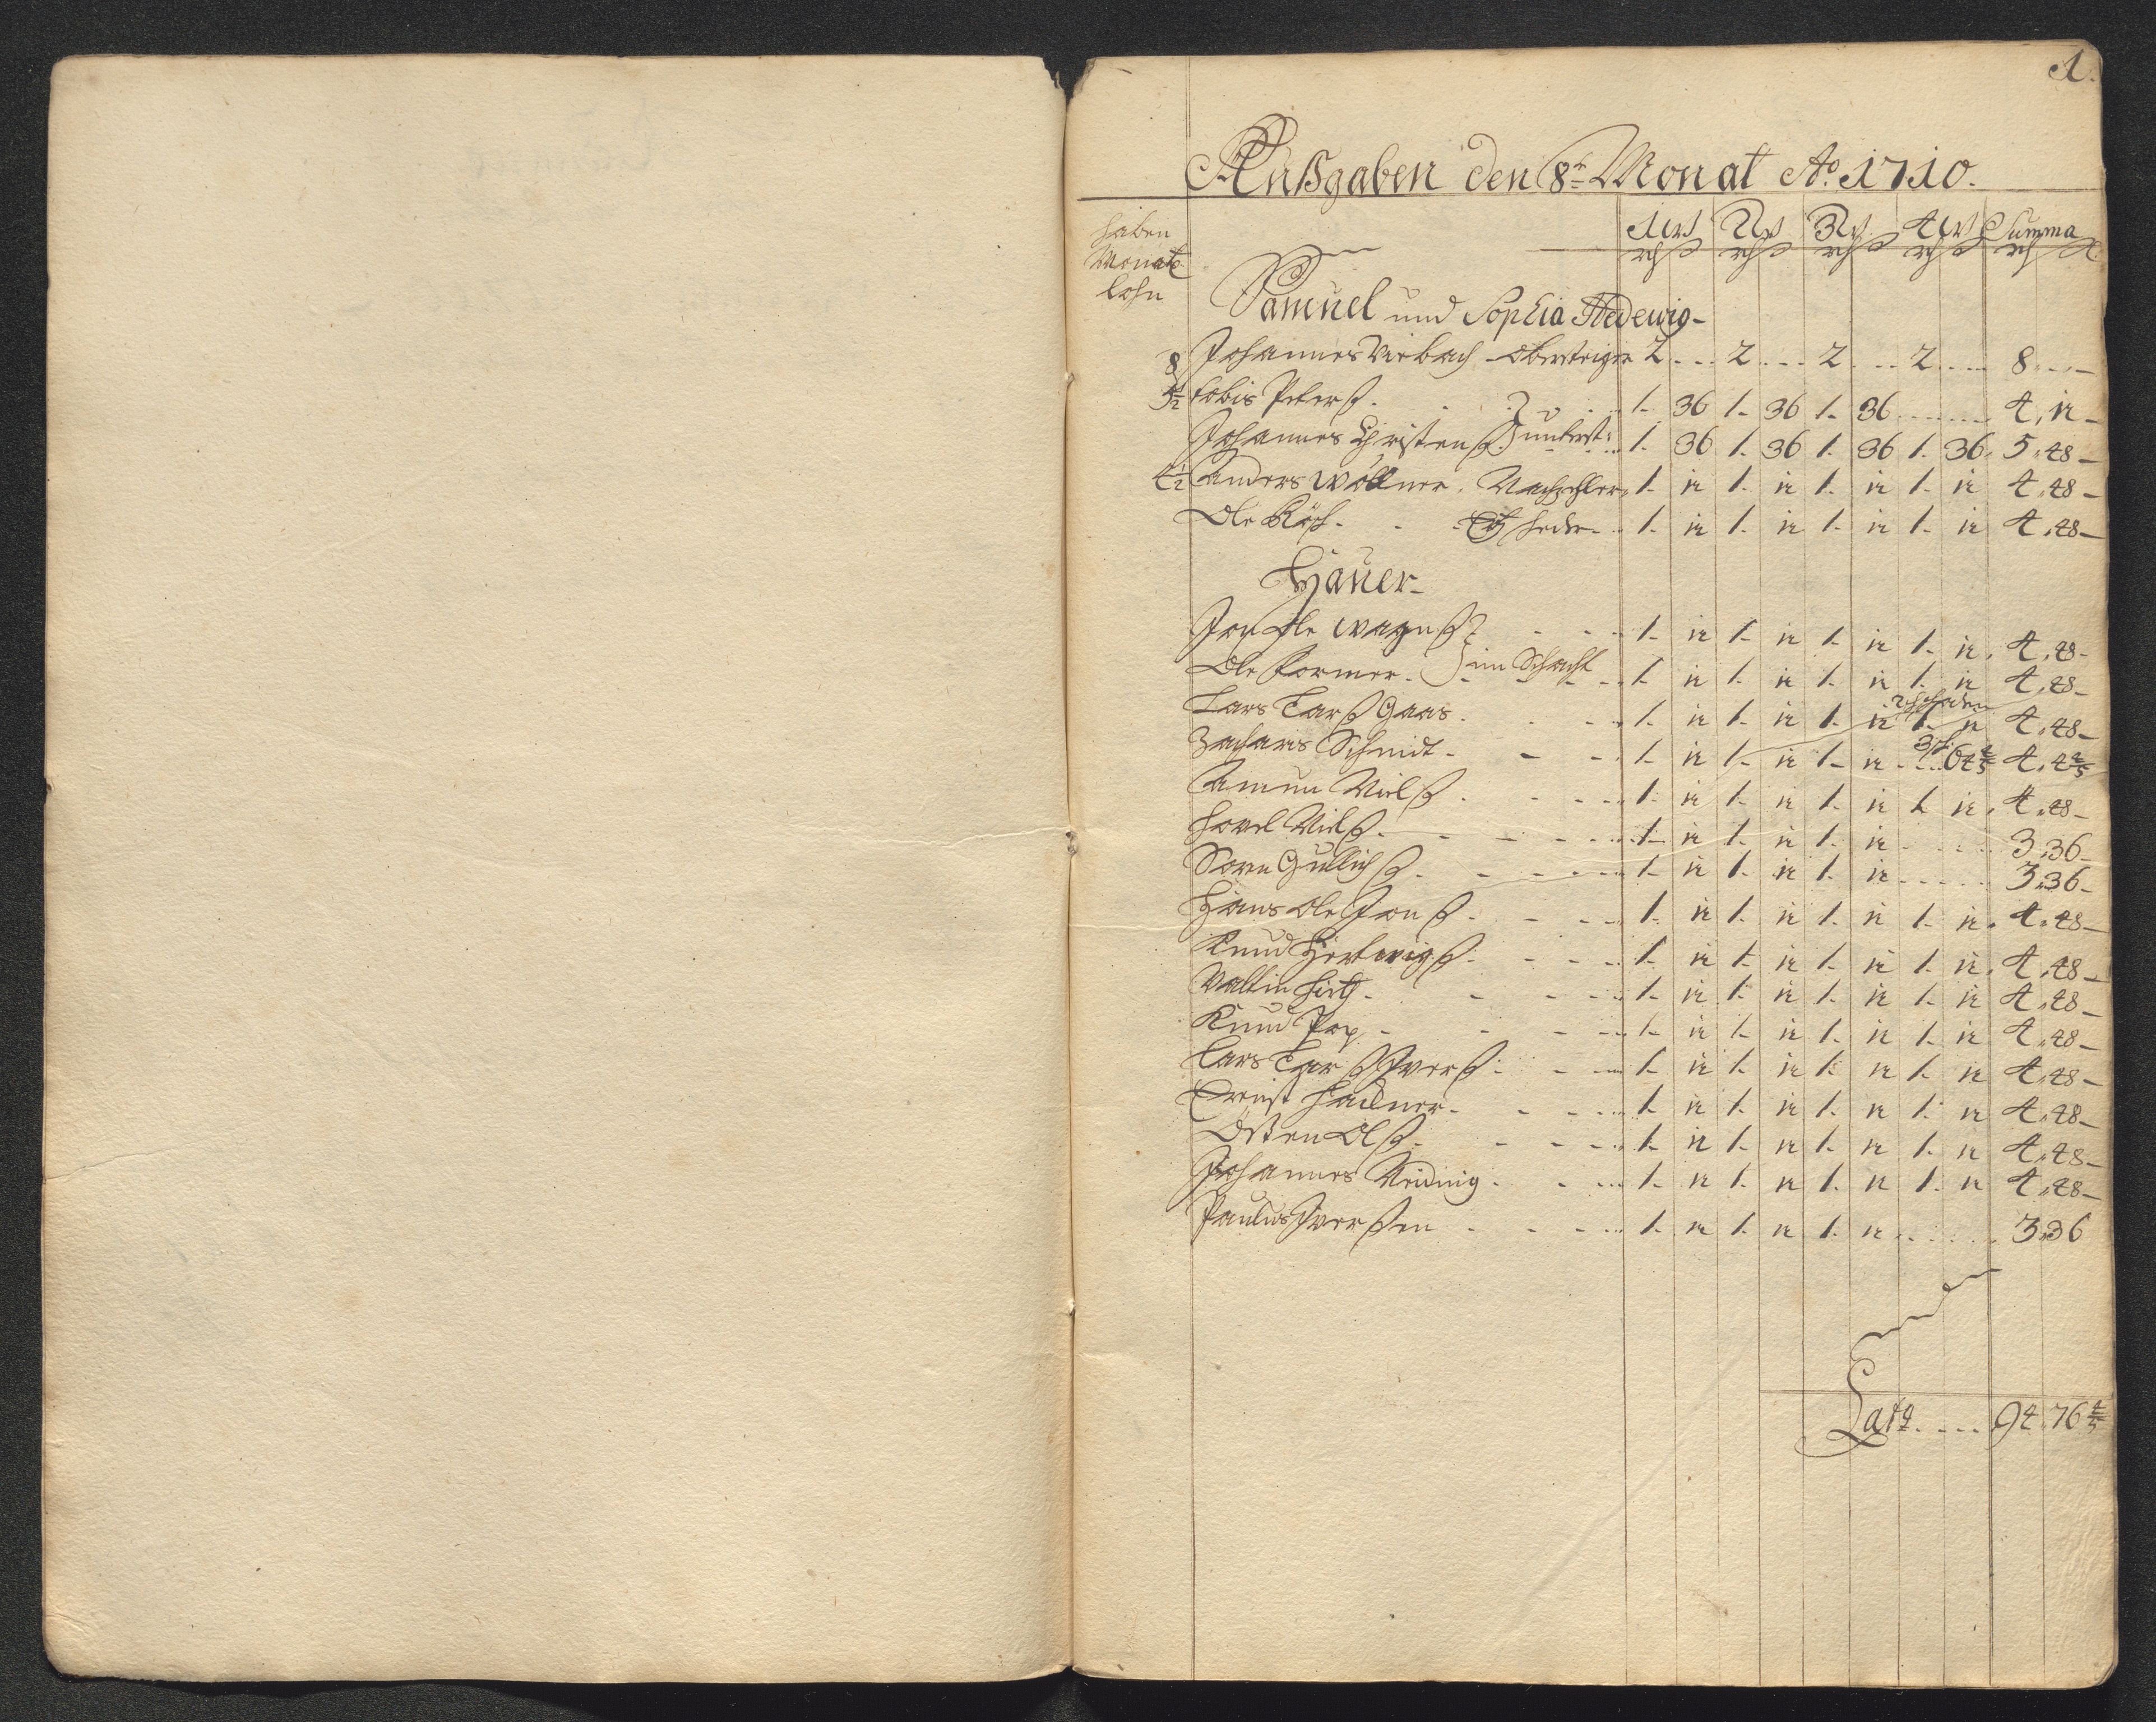 1.
Außgaben den 8t Monat Ao. 1710.
haben Monats lohn
1 W 2 W 3 W 4 W Summa
rh ß rh ß rh ß rh ß rh ß
Samuel und Sophia Hedewig
8 Johannes Viebach Obersteiger 2 2 2 2 8
5½ Tobis Peterß. 1. 36 1. 36 1. 36 4. 12
Johannes Christenß. unterst: 1. 36 1. 36 1. 36 1. 36 5. 48
4½ Anders Wöllner. 1. 12 1. 12 1. 12 1. 12 4. 48
Ole 1. 12 1. 12 1. 12 1. 12 4. 48
Häuer
Jon Ole 1. 12 1. 12 1. 12 1. 12. 4. 48
Ole Former. im Schacht 1. 12 1. 12 1. 12 1. 12 4. 48
Lars Larß Gaas. 1. 12 1. 12 1. 12 1. 12 4. 48
Zacharis Schmidt 1. 12 1. 12 1. 12 64⅘ 4. 4⅘
Amun Nielß. 1. 12 1. 12 1. 12 1. 12. 4. 48
Nielß. 1. 12 1. 12 1. 12 3. 36
Sören Gullichß. 1. 12 1. 12 1. 12 3. 36
Hans Ole Jonß. 1. 12 1. 12 1. 12 1. 12. 4. 48
Knud Hertwigß. 1. 12 1. 12 1. 12 1. 12. 4. 48
Valtin 1. 12 1. 12 1. 12 1. 12 4. 48
Knud Pop 1. 12 1. 12 1. 12 1. 12 4. 48
Lars Larß Iverß. 1. 12 1. 12 1. 12 1. 12 4. 48
Ernst 1. 12 1. 12 1. 12 1. 12 4. 48
Östen Olß. 1. 12 1. 12 1. 12 1. 12 4. 48
Johannes 1. 12 1. 12 1. 12 1. 12 4. 48
Paulus Iverßen 1. 12 1. 12 1. 12 3. 36
Latq 94. 76⅘